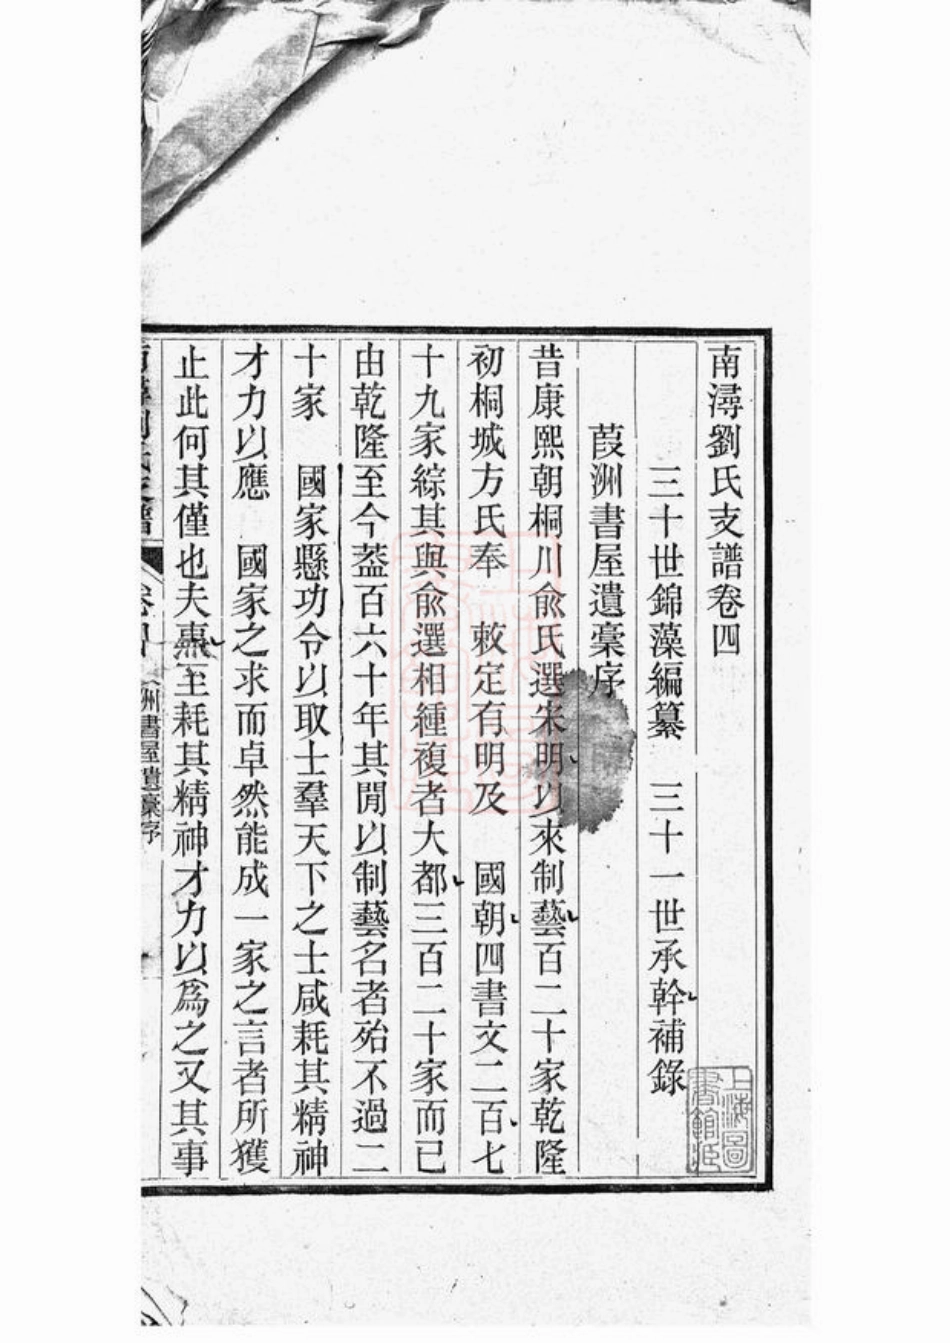 南潯劉氏支譜卷四
三十世錦藻編纂　三十一世承幹補錄
葭洲書屋遺稾序
昔康熙朝桐川俞氏選宋明以來制藝百二十家乾隆
初桐城方氏奉　敕定有明及　國朝四書文二百七
十九家綜其與俞選相緟複者大都三百二十家而已
由乾隆至今葢百六十年其閒以制藝名者殆不過二
十家　國家懸功令以取士羣天下之士咸耗其精神
才力以應　國家之求而卓然能成一家之言者所獲
止此何其僅也夫至耗其精神才力以爲之又其事
洲書屋遺稾序
上海圖書館藏